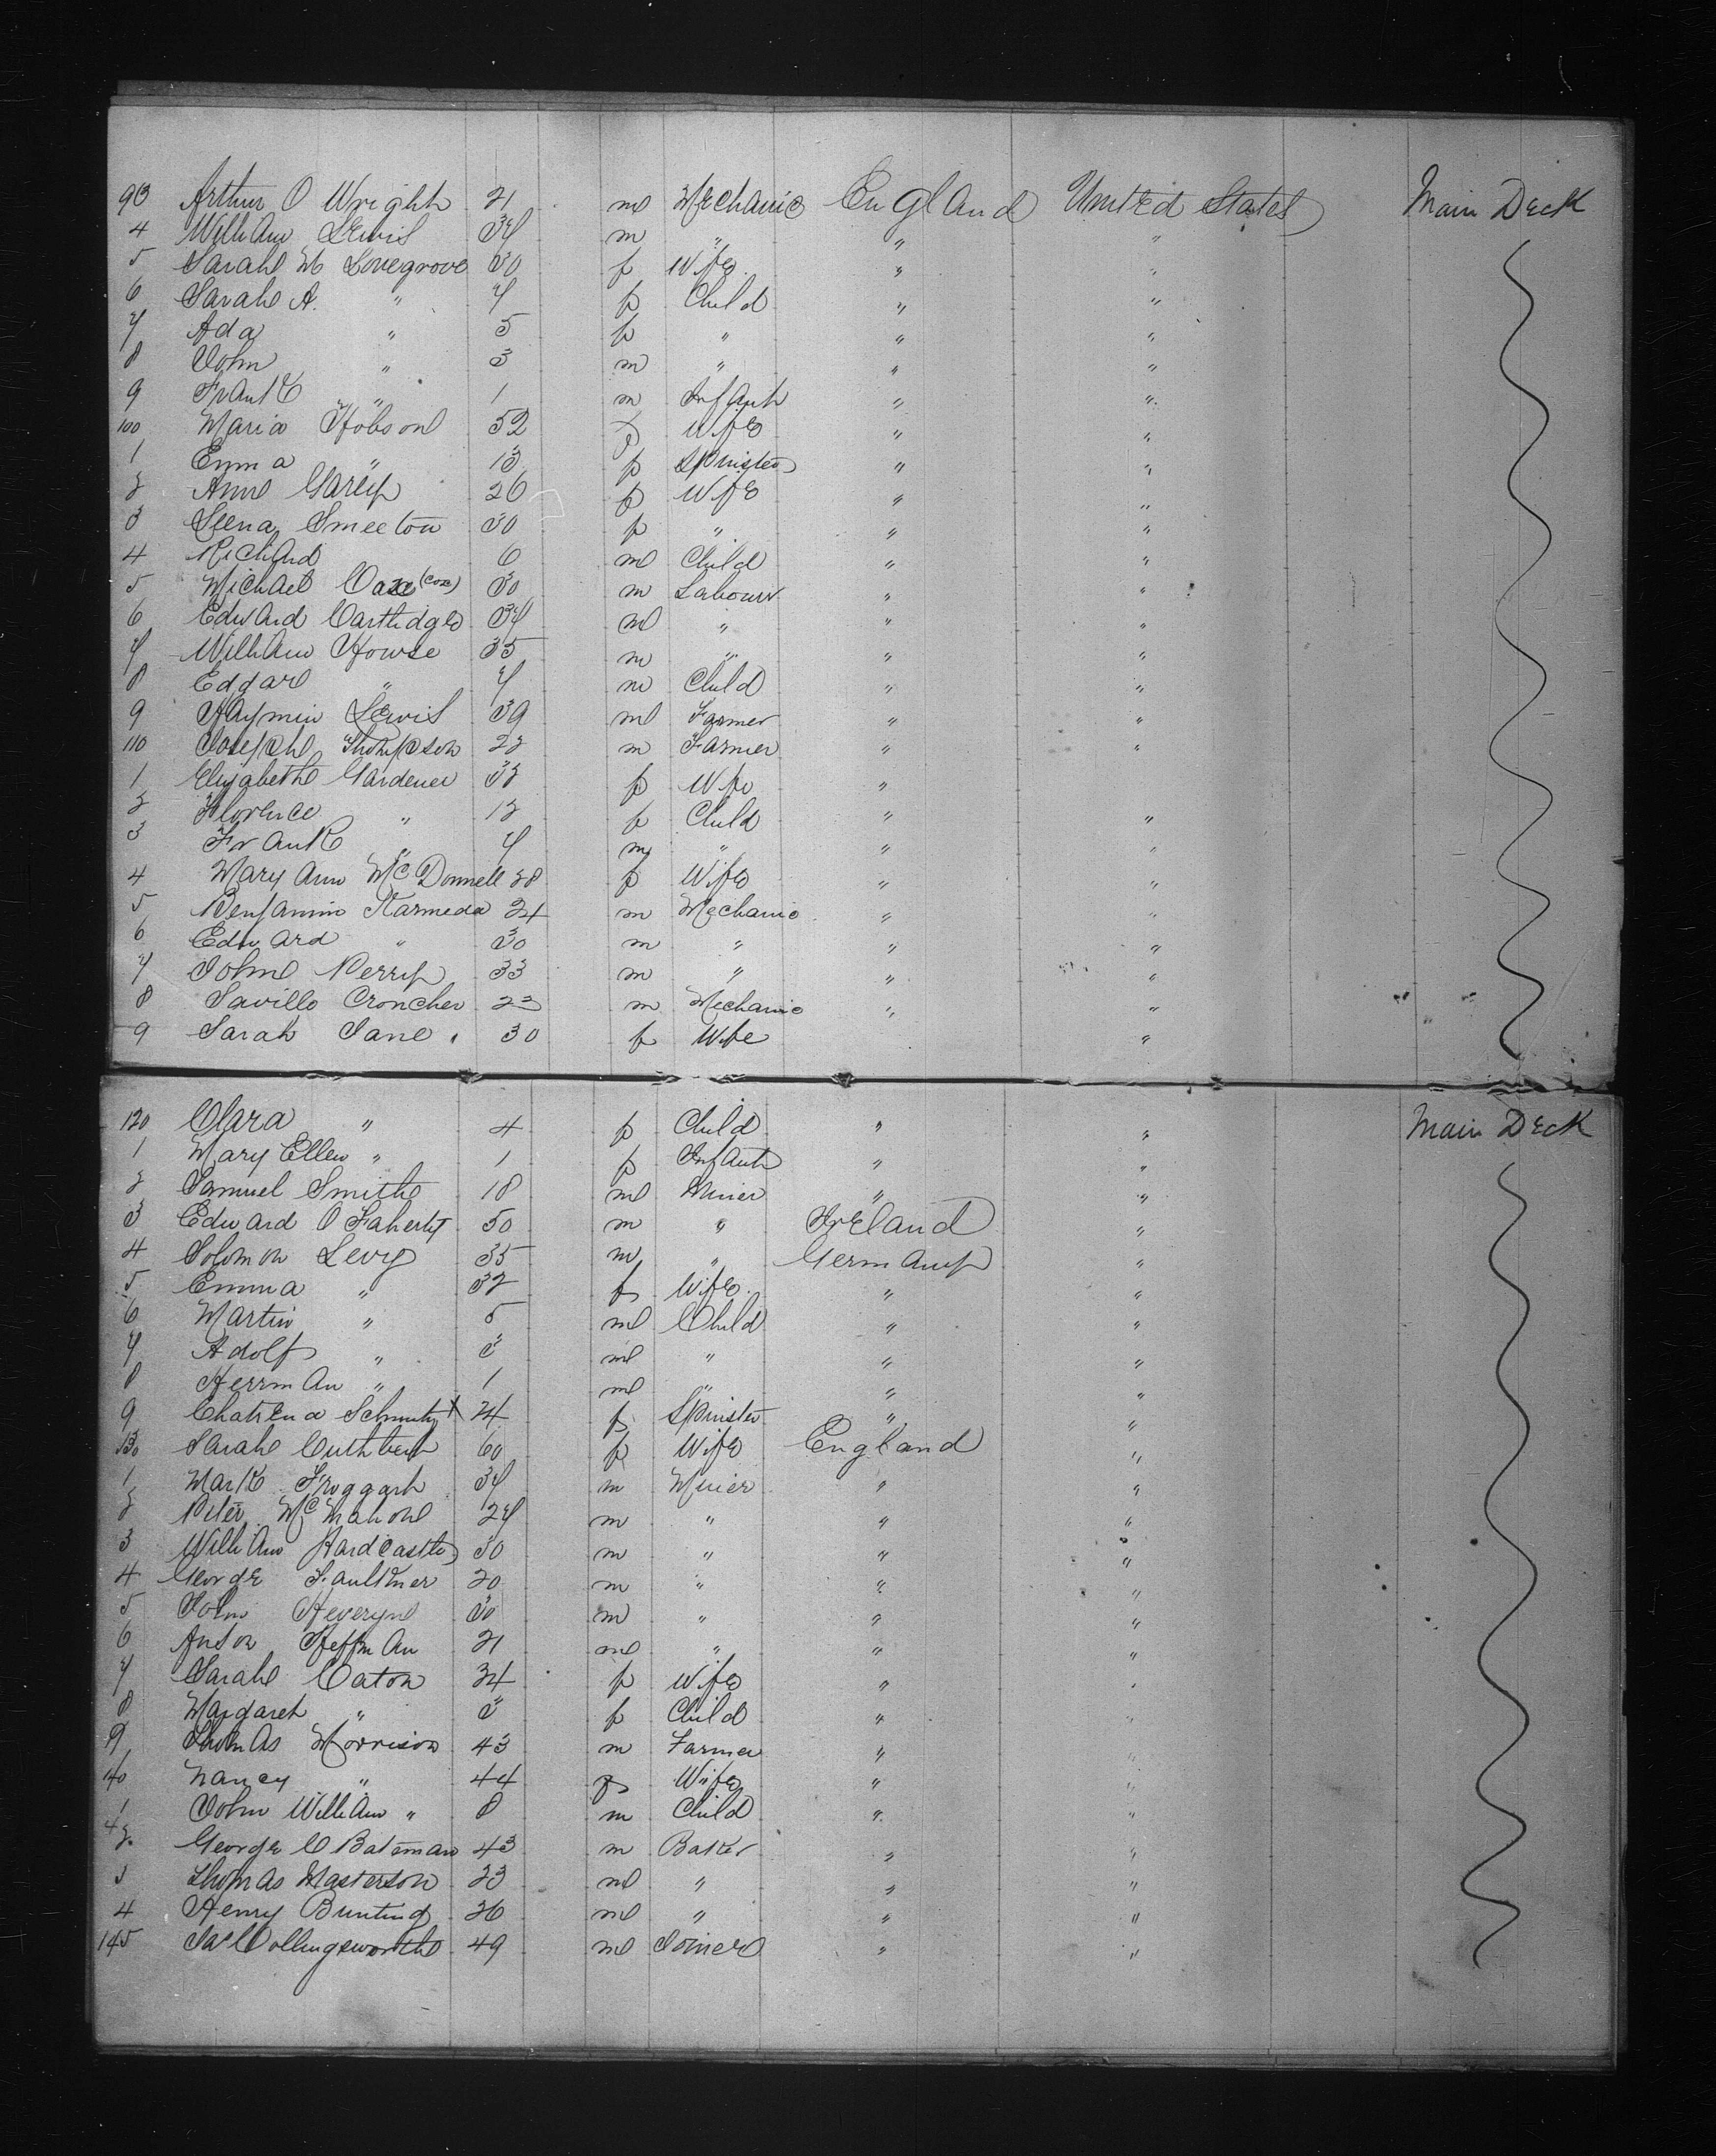 93 Arthur O Wright 21 m Mechanic England United States Main Deck
4 William Lewis 37 m " " "
5 Sarah M Lovegrove 30 f Wife " "
6 Sarah A. " 7 f Child " "
7 Ada " 5 f " " "
8 John " 3 m " " "
9 Frank " 1 m Infant " "
100 Maria Hobson 52 f Wife " "
1 Emma " 13 f Spinster " "
2 Anne Garey 26 f Wife " "
3 Leena Smeeton 30 f " " "
4 Richard 6 m Child " "
5 Michael (Cox) 30 m Labourer " "
6 Edward Cartlidge 37 m " " "
7 William Howse 35 m " " "
8 Edgar " 7 m Child " "
9 Haymin Lewis 39 m Farmer " "
110 Joseph Thompson 22 m Farmer " "
1 Elizabeth Gardener 32 f Wife "
2 Florence " 12 f Child " "
3 Frank " 7 m " " "
4 Mary Ann McDonnell 28 f Wife " "
5 Benjamin Karmeda 24 m Mechanic " "
6 Edward " 30 m " " "
7 John Perry 33 m " " "
8 Saville Croncher 23 m Mechanic " "
9 Sarah Jane " 30 f Wife "
120 Clara " 4 f Child " " Main Deck
1 Mary Ellen " 1 f Infant " "
2 Samuel Smith 18 m Miner " "
3 Edward O Faherty 50 m " Ireland "
4 Solomon Levy 35 m " Germany "
5 Emma " 32 f Wife " "
6 Martin " 5 m Child " "
7 Adolf " 3 m " " "
8 Herrman " 1 m " " "
9 Chatrena 24 f Spinster " "
130 Sarah Cuthbert 60 f Wife England "
1 Mark Froggart 37 m Miner " "
2 Peter McMahon 27 m " " "
3 William Hardcastle 30 m " " "
4 George Faulkner 20 m " " "
5 John Heveryn 30 m " " "
6 Anton Heffman 21 m " " "
7 Sarah Caton 34 f Wife " "
8 Margaret " 3 f Child " "
9 Thomas Morrison 43 m Farmer " "
140 Nancy " 44 f Wife " "
1 John William " 8 m Child " "
42 George C Bateman 43 m Baker " "
3 Thomas Masterson 23 m " " "
4 Henry Bunting 26 m " " "
145 Jas Collingsworth 49 m Joiner " "